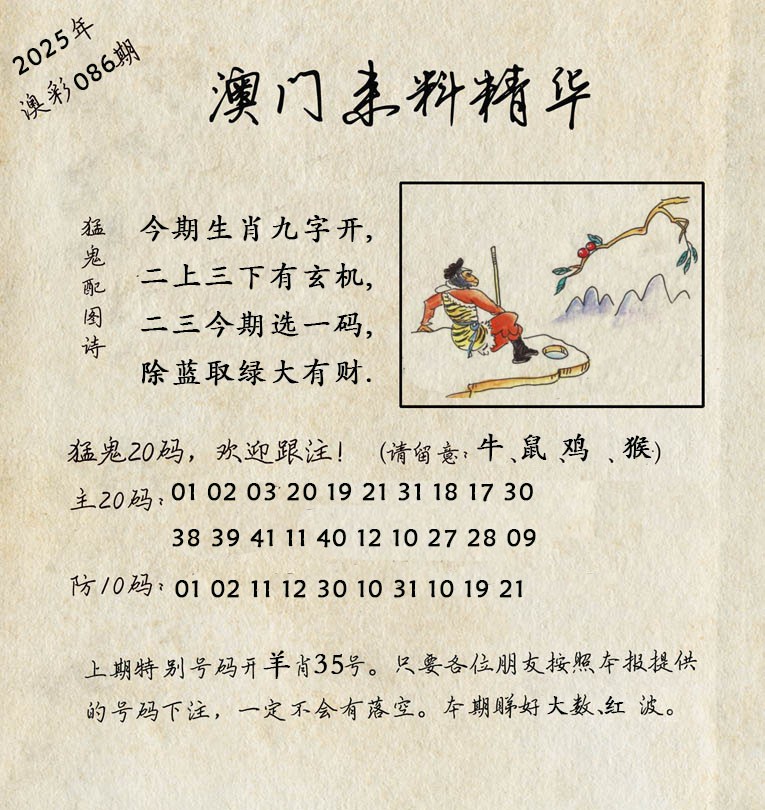 2025年
澳彩086期
澳门来料精华
猛鬼配图诗
今期生肖九字开,
二上三下有玄机,
二三今期选一码,
除蓝取绿大有财.
猛鬼20码，欢迎跟注！（请留意：牛、鼠、鸡、猴）
主20码：01 02 03 20 19 21 31 18 17 30
38 39 41 11 40 12 10 27 28 09
防10码：01 02 11 12 30 10 31 10 19 21
上期特别号码开羊肖35号。只要各位朋友按照本报提供
的号码下注，一定不会有落空。本期睇好大数、红 波。